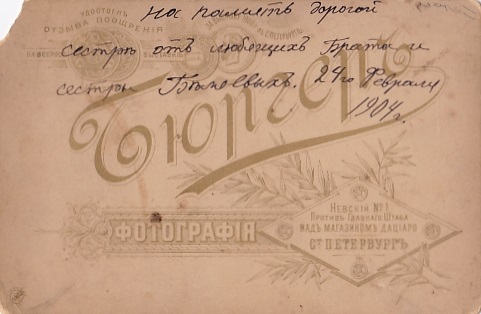 На память дорогой
УДОСТОЕН
ОТЗЫВА ПООЩРЕНІЯ
сестрѣ отъ любящихъ Брата и
сестры 24го Февраля
1904 г.
Бюргеръ
ФОТОГРАФІЯ
НЕВСКІЙ № 1
ПРОТИВЪ ГЛАВНАГО ШТАБА
НАДЪ МАГАЗИНОМЪ ДАЦІАРО
СТ ПЕТЕРБУРГЪ